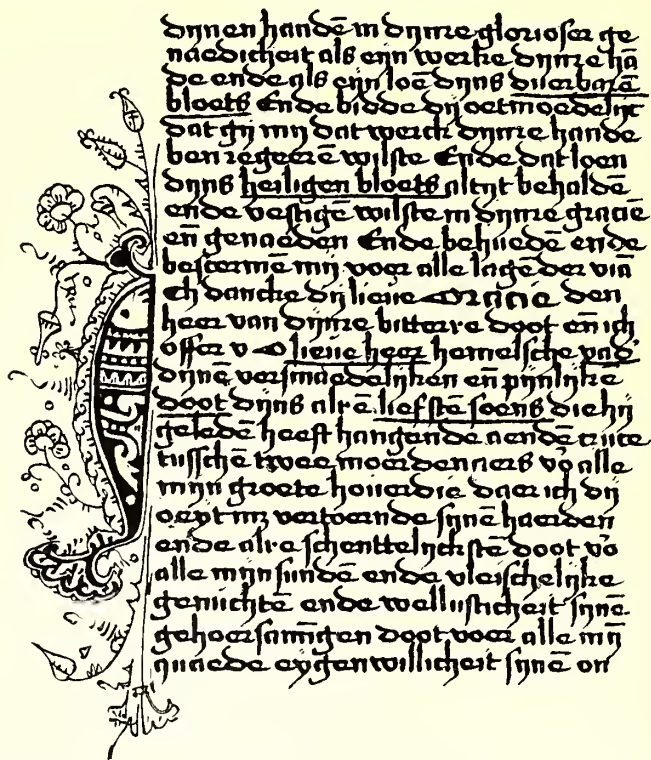 dijnen handē in dijnre glorioser ge
naedicheit als eyn werke dijnre hā
de ende als eijn loē dijns duerbarē
bloets Ende bidde dij oetmoedelijc
dat gij mij dat werck dijnre hande
ben regeerē wilste Ende dat loen
dijns heiligen bloets altijt behaldē
ende vestigē wilste in dijnre graciē
eñ genaeden Ende behuedē ende
bescermē mij voer alle lagē der viā
Ich dancke dij lieue Oracie den
heer van dijnre bitterre doot eñ ich
offer v O lieue heer hemelsche vad'
dijnē versmaedelijken eñ pijnlijkē
doot dijns alrē liefstē soens die hij
geledē heeft hangende aendē cruce
tusschē twee moerdenaers vō alle
mijn groete houerdie daer ich dij
oeyt mz vertoernde sijnē haerden
ende alre schenttelijckstē doot vō
alle mijn sundē ende vleischelijke
genuchtē ende wellusticheit sijnē
gehoersamīgen doot voer alle mij̄
quaede eygenwillicheit sijnē on